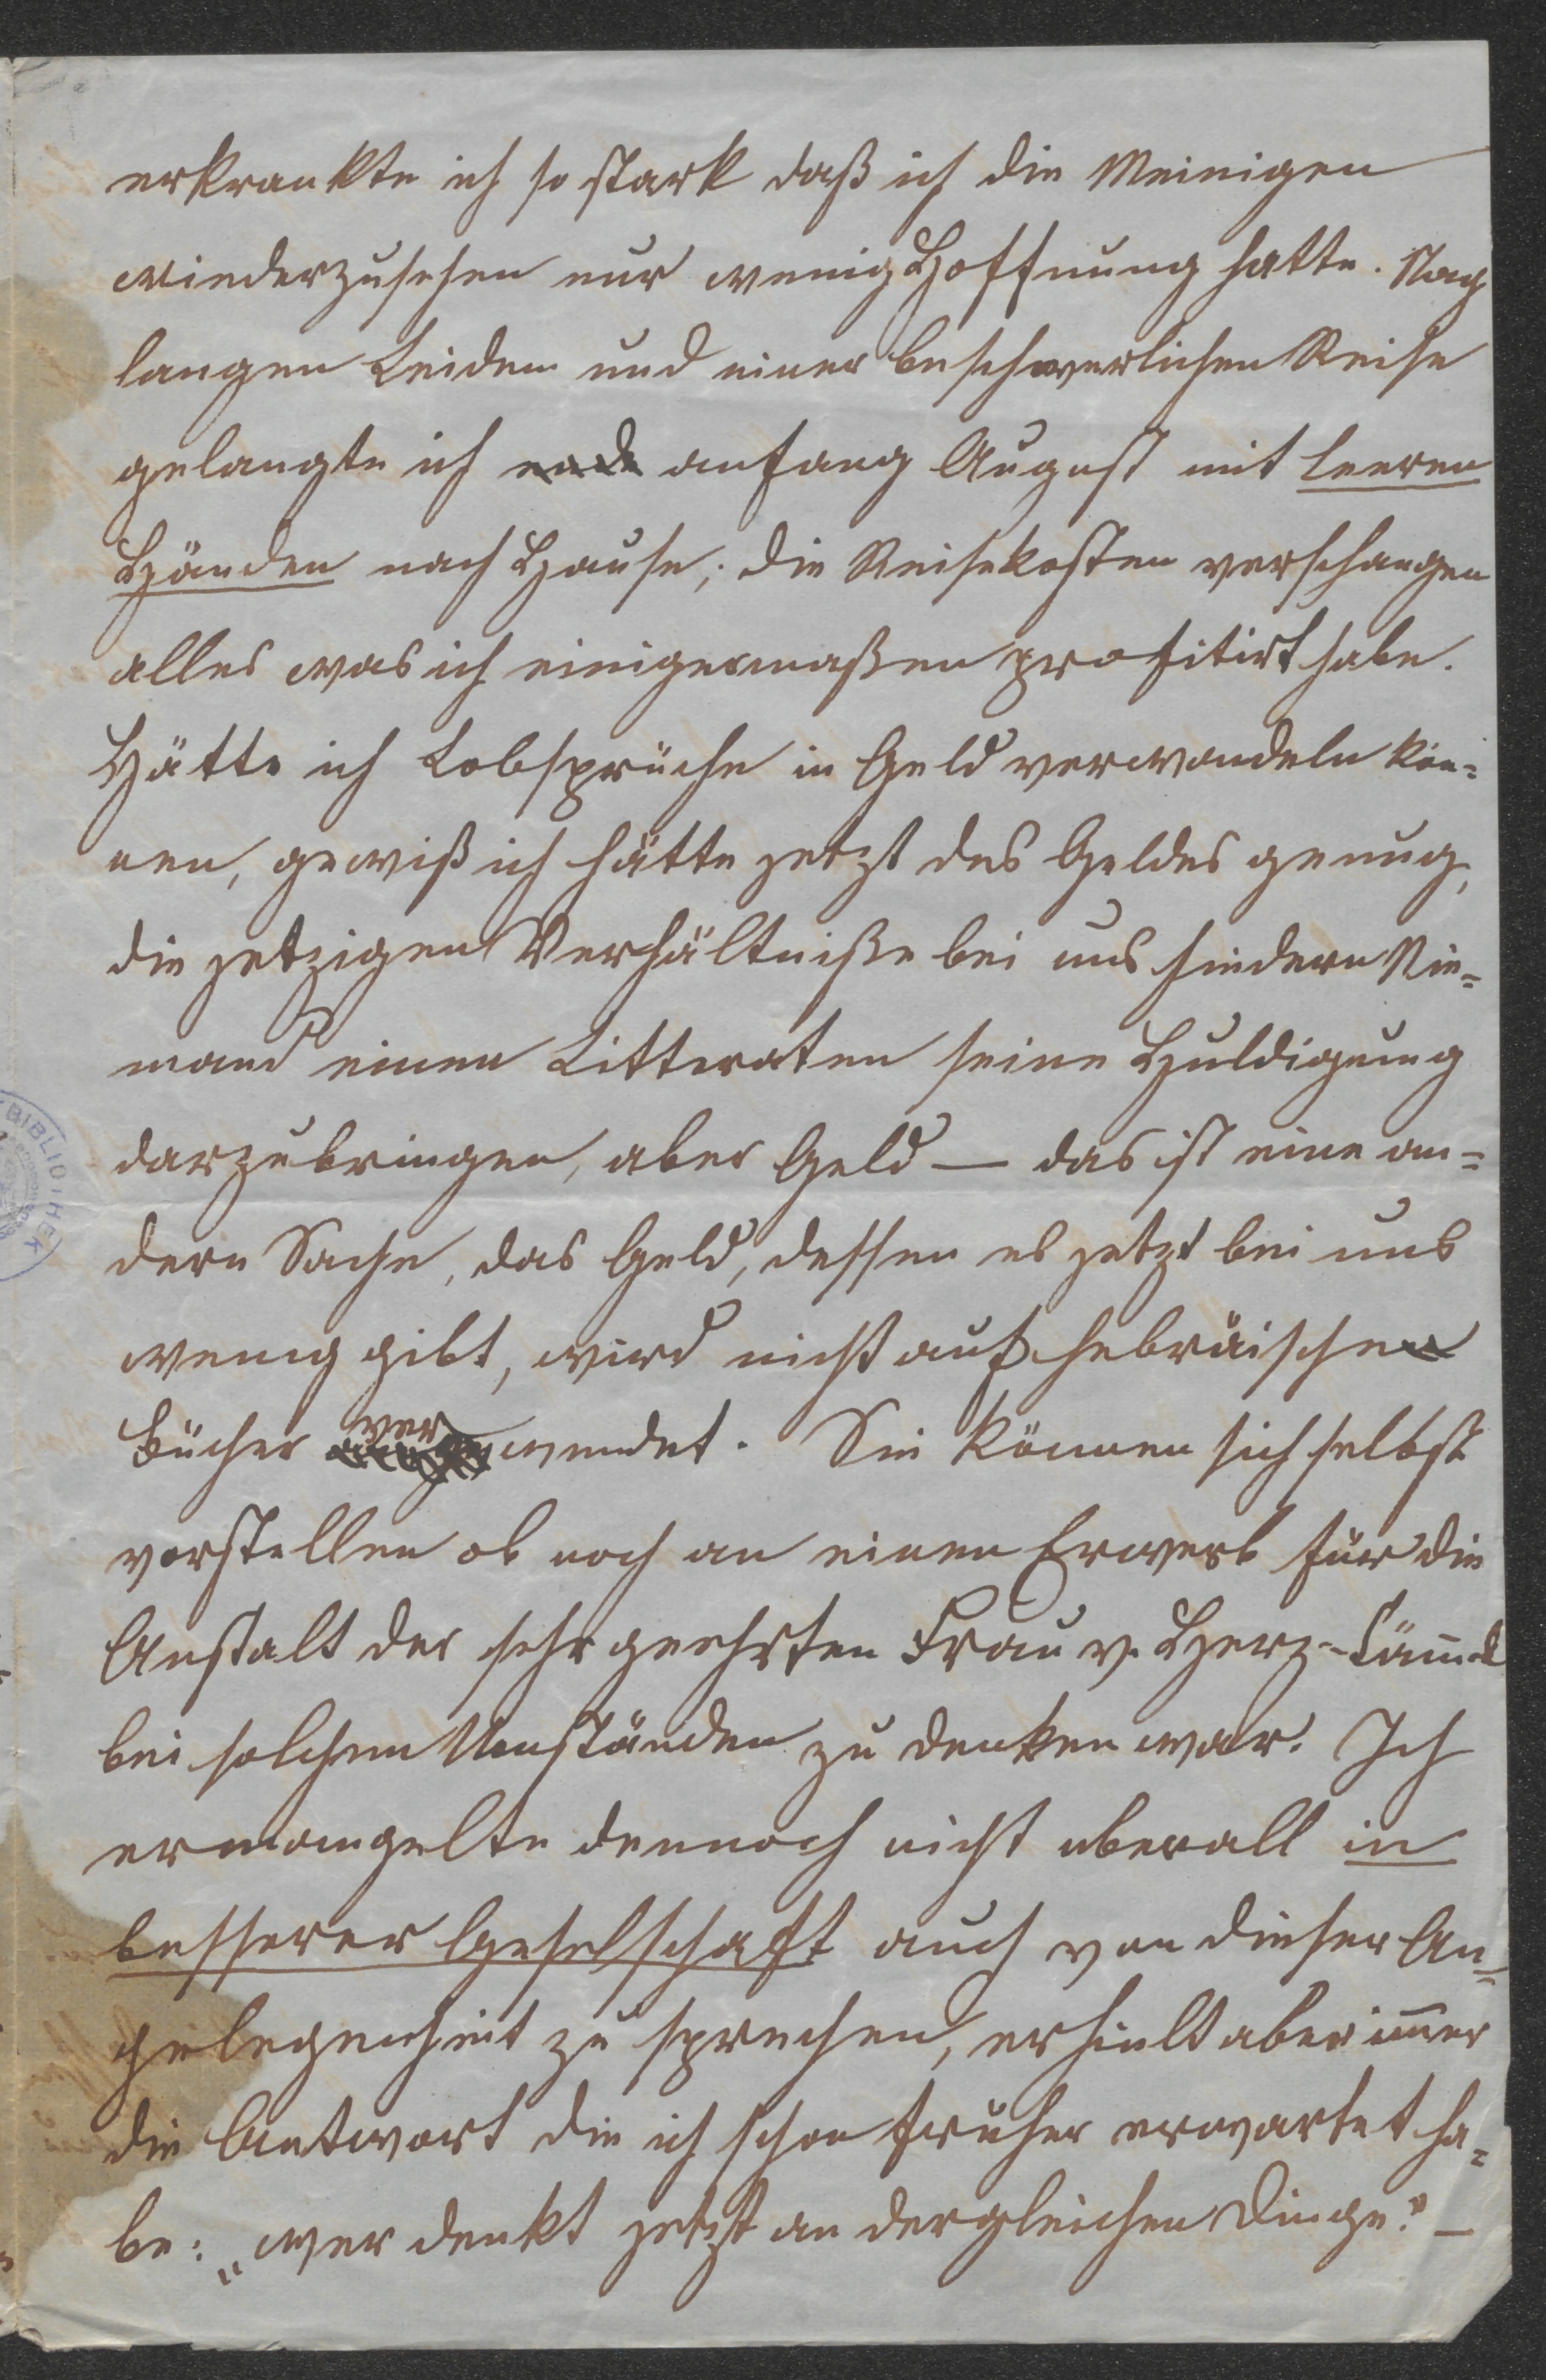 erkrankte ich so stark daß ich die Meinigen
wiederzusehen nur wenig Hoffnung hatte. Nach
langen Leiden und einer beschwerlichen Reise
gelangte ich ende anfang August mit leeren
Händen nach Hause; die Reisekosten verschangen
alles was ich einigermaßen profitirt habe.
Hätte ich Lobsprüche in Geld verwandeln kön=
nen, gewiß ich hätte jetzt des Geldes genug,
die jetzigen Verhältniße bei uns hindern Nie=
mand einen Litteraten seine Huldigung
darzubringen, aber Geld — das ist eine an=
dere Sache, das Geld, dessen es jetzt bei uns
wenig gibt, wird nicht auf hebräischen
Bücher verwendet. Sie können sich selbst
vorstellen ob noch an einen Erwerb für die
Anstalt der sehr geehrten Frau v. Herz-Läm̄el
bei solchen Umständen zu denken war. Ich
ermangelte dennoch nicht uberall in
besserer Geselschaft auch von dieser An=
gelegenheit zu sprechen, erhielt aber im̄er
die Antwort die ich schon fruher erwartet ha=
be: „wer denkt jetzt an dergleichen Dinge." —
BIBLIOTHEK